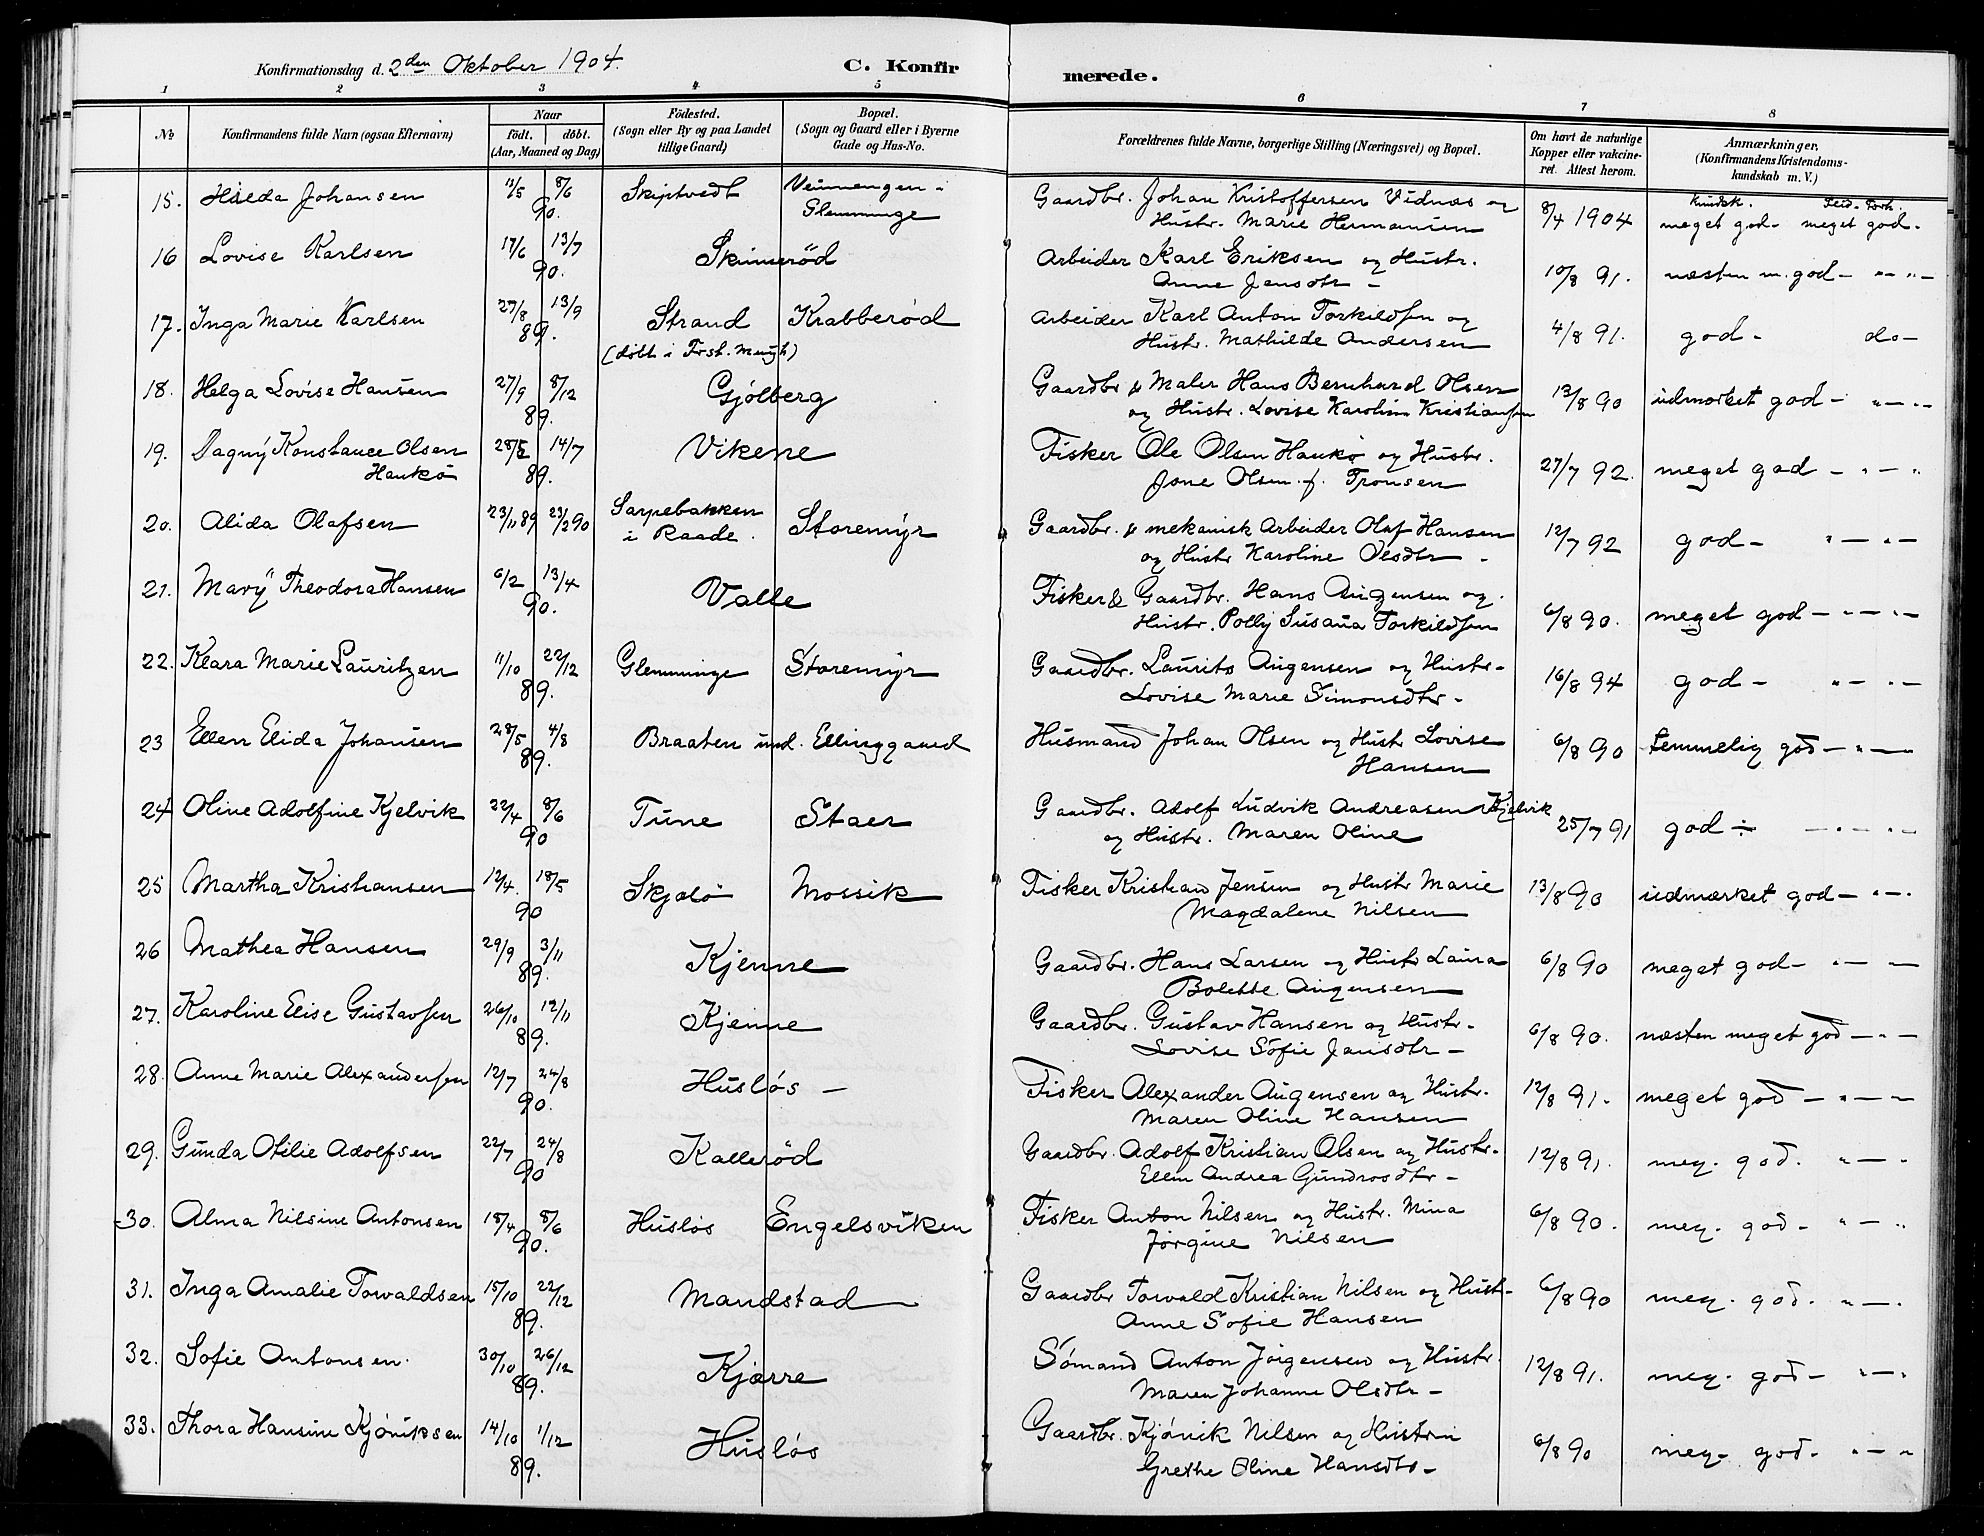 Konfirmationsdag d. 2den Oktober 1904. C. Konfirmerede.
1 2 3 4 5 6 7 8
No Konfirmandens fulde Navn (ogsaa Efternavn) Naar født. døbt. (Aar, Maaned og Dag) Fødested. (Sogn eller By og paa Landet tillige Gaard) Bopæl. (Sogn og Gaard eller i Byerne Gade og Hus-No. Forældrenes fulde Navne, borgerlige Stilling (Næringsvei) og Bopæl. Om havt de naturlige Kopper eller vakcineret. Attest herom. Anmærkninger. (Konfirmandens Kristendomskundskab m. V.)
15. Hilda Johansen 11/5 8/6 90. Skiptvedt i Glemminge Gaardbr. Johan Kristoffersen Vidnæs og 8/4 1904 meget god - meget god -
Hustr. Marie Hermansen
16 Lovise Karlsen 17/6 13/7 90. Skinnerød Arbeider Karl Eriksen og Hustr. 10/8 91. næsten m. god - " - " -
Anne Jensdtr -
17. Inga Marie Karlsen 27/8 13/9 89. Strand Krabberød Arbeider Karl Anton Torkildsen og 4/8 91. god - do -
(døbt i Frst. Mengh) Hustr. Mathilde Andersen
18. Helga Lovise Hansen 27/9 8/12 89. Gjølberg Gaardbr & Maler Hans Bernhard Olsen 13/8 90 udmærket god - " - " -
og Hustr. Lovise Karolin Kristiansen
19. Dagny Konstance Olsen 28/5 14/7 89. Vikene Fisker Ole Olsen Hankø og Hustr. 27/7 92. meget god - " - "
Hankø Jone Olsen f. Tronsen
20. Alida Olafsen 23/11 89 23/2 90 Sarpebakken i Raade. Storemyr Gaardbr. & mekanisk Arbeider Olaf Hansen 12/7 92 god - " - " -
og Hustr Karoline Olsdtr -
21. Mary Theodora Hansen 6/2 13/4 90. Valle Fisker & Gaardbr. Hans Augensen og 6/8 90. meget god - " - " -
Hustr. Polly Susana Torkildsen
22. Klara Marie Lauritzen 11/10 22/12 89. Glemminge Storemyr Gaardbr. Laurits Augensen og Hustr - 16/8 94 god - " - " -
Lovise Marie Simonsdtr -
23 Ellen Elida Johansen 28/5 4/8 89. Braaten und. Ellinggaard Husmand Johan Olsen og Hustr Lovise 6/8 90 temmelig god - " -
Hansen
24 Oline Adolfine Kjelvik 22/4 8/6 90 Tune Staer Gaardbr. Adolf Ludvik Andreasen Kjelvik 25/7 91 god ÷ - " - " -
og Hustr. Maren Oline
25 Martha Kristiansen 12/4. 18/5 90 Skjælø Mossik Fisker Kristian Jensen og Hustr Marie 13/8 90 udmærket god - " - "
Magdalene Nilsen
26 Mathea Hansen 29/9 3/11 89. Kjenne Gaardbr. Hans Larsen og Hustr Laura 6/8 90 meget god - " - -
Bolette Augensen
27. Karoline Elise Gustavsen 26/10 12/11 89. Kjenne Gaardbr. Gustav Hansen og Hustr - 6/8 90. næsten meget god - " -
Lovise Sofie Jansdtr -
28. Anne Marie Alexandersen 12/7 24/8 90. Husløs - Fisker Alexander Augensen og Hustr. 12/8 91. meget god - " - -
Maren Oline Hansen
29. Gunda Otilie Adolfsen 22/7 24/8 90 Kallerød Gaardbr. Adolf Kristian Olsen og Hustr - 12/8 91. meg. god. " - "
Ellen Andrea Gundrosdtr -
30. Alma Nilsine Antonsen 18/4 8/6 90. Husløs Engelsviken Fisker Anton Nilsen og Hustr. Mina 6/8 90. meg. god - " - "
Jørgine Nilsen
31. Inga Amalie Torvaldsen 15/10 22/12 89. Mandstad Gaardbr Torvald Kristian Nilsen og Hust - 6/8 90 meg. god. " - .
Anne Sofie Hansen
32. Sofie Antonsen. 30/10 26/12 89. Kjærre Sømand Anton Jørgensen og Hustr. 12/8 91. meg. god - " - "
Maren Johanne Olsdtr -
33. Thora Hansine Kjøniksen 14/10 1/12 89. Husløs Gaardbr. Kjønik Nilsen og Hustru 6/8 90 meg - god - " - "
Grethe Oline Hansdtr -